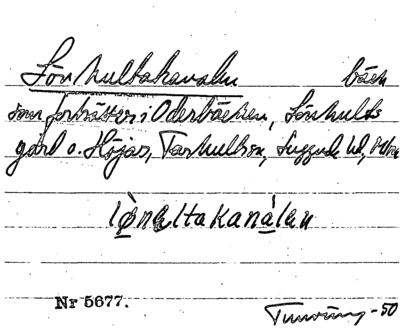 Lönhultakanalen bäck
som fortsätter i Oderbäcken, Lönhults
gård o. Höjas, Farhultson, Luggude hd,
lønelta kanálan
Nr 5677.
-50